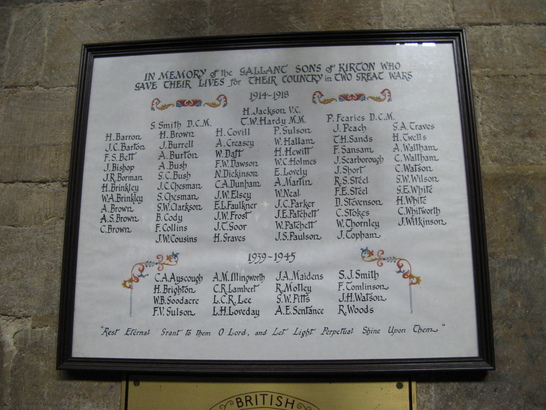 IN MEMORY of the GALLANT SONS of KIRTON WHO
SAVE THEIR LIVES for THEIR COUNTRY in TWO GREAT WARS
1914-1918
H. Jackson V.C.
T.W. Hardy M.M.
S. Smith D.C.M.
P. Fearies D.C.M.
H. Barron
J.C. Barton
F.S. Bett
J. Bishop
J.R. Borman
H. Brinkley
W.A. Brinkley
A. Brown
A.S. Brown
C. Brown
H. Brown
J. Burrell
A. Burton
A. Bush
S.C. Bush
J.C. Chesman
S. Chesman
S.W. Clarkson
B. Cody
F. Collins
J.W. Cousins
H. Covill
A. Creasey
W. Daft
F.W. Dawson
N. Dickinson
C.A. Dunham
J.W. Elsey
E.L. Faulkner
J.W. Frost
J.C. Goor
H. Graves
P. Gulson
W. Hallam
H. Hewitt
W.C. Holmes
E. Lovely
A. Martin
W. Neal
J.C. Parker
J.E. Patchett
W. Patchett
J.S. Paulson
J. Peach
T.H. Sands
F. Sansam
J. Scarborough
J. Short
R.S. Steel
F.E. Steel
D. Stevenson
C. Stokes
W. Thornley
J. Topham
S.A. Traves
H. Twells
A. Waltham
C. Waltham
C. Watson
S.W. Wilson
S.E. White
H. White
C. Whitworth
J. Wilkinson
1939-1945
C.A. Ayscough
H. Brighton
W.B. Goodacre
F.V. Gulson
A.M. Illingworth
C.R. Lambert
L.C.R. Lee
L.H. Loveday
J.A. Maidens
R. Motley
S.W. Pitts
A.E. Sentance
S.J. Smith
F. Tomlinson
J.H. Watson
R. Woods
"Rest Eternal Grant to them O Lord, and Let Light Perpetual Shine Upon Them."
BRITISH